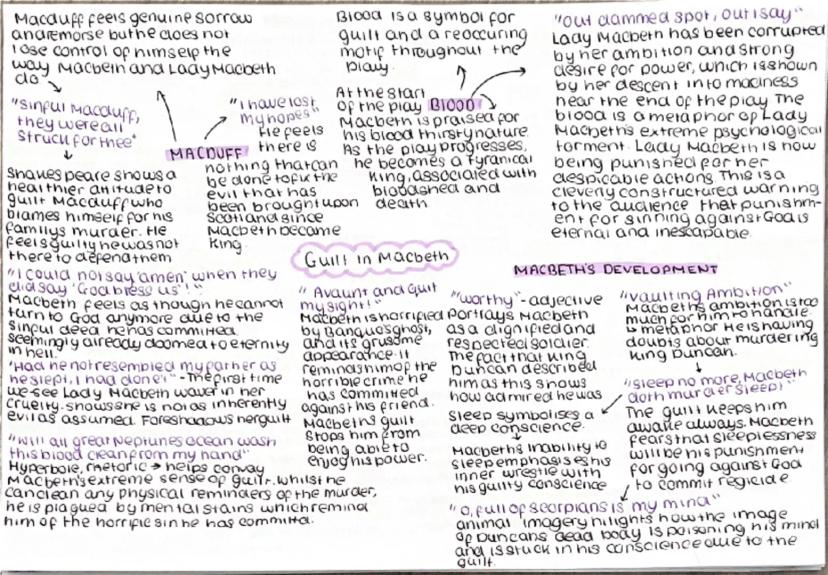 Macduff feels genuine sorrow
and remorse but he does not
lose control of himself the
way Macbeth and Lady Macbeth
do
"Sinful Macduff,
they were all
struck for thee"
"I have lost
my hopes"
He feels
there is
nothing that can
be done to fix the
evil that has
been brought upon
Scotland since
Macbeth became
King.
MACDUFF
Shakespeare shows a
healthier attitude to
guilt Macduff who
blames himself for his
familys murder. He
feels guilty he was not
there to defend them
Blood is a symbol for
guilt and a reoccuring
motif throughout the
play.
At the start
of the play BLOOD
Macbeth is praised for
his blood thirsty nature.
As the play progresses,
he becomes a tyranical
king, associated with
bloodshed and
death
"Out dammed spot, out I say"
Lady Macbeth has been corrupted
by her ambition and strong
desire for power, which is shown
by her descent into madness
near the end of the play The
blood is a metaphor of Lady
Macbeth's extreme psychological
torment. Lady Macbeth is now
being punished for her
despicable actions This is a
cleverly constructed warning
to the audience that punishm-
ent for sinning against God is
eternal and inescapable.
Guilt in Macbeth
"I could not say 'amen' when they
did say 'God bless us'!"
Macbeth feels as though he cannot
turn to God anymore due to the
sinful deed he has committed.
seemingly already doomed to eternity
in hell.
"Had he not resembled my father as
he slept, I had done't" - The first time
we see Lady Macbeth waver in her
cruelty. shows she is not as inherently
evil as assumed. Foreshadows her guilt
"Will all great Neptunes ocean wash
this blood clean from my hand"
Hyperbole, rhetoric → helps convay
Macbeth's extreme sense of guilt. whilst he
can clean any physical reminders of the murder,
he is plagued by mental stains which remind
him of the horrific sin he has committed.
"Avaunt and quit
my sight!"
Macbeth is horrified
by Banquo's ghost,
and its grusome
appearance. It
reminds him of the
horrible crime he
has committed
against his friend.
Macbeths guilt
stops him from
being able to
enjoy his power.
MACBETH'S DEVELOPMENT
"worthy" - adjective
portrays Macbeth
as a dignified and
respected soldier.
The fact that King
Duncan described
him as this shows
how admired he was
Sleep symbolises a
deep conscience.
Macbeth's inability to
sleep emphasises his
inner wrestle with
his guilty conscience
"Vaulting Ambition"
Macbeth's ambition is too
much for him to handle
metaphor He is having
doubts about murdering
King Duncan.
"Sleep no more, Macbeth
doth murder sleep!"
The guilt keeps him
awake always. Macbeth
fears that sleeplessness
will be his punishment
for going against God
to commit regicide
"O, full of scorpians is my mind"
animal imagery hilights how the image
of Duncans dead body is poisoning his mind
and is stuck in his conscience due to the
guilt.